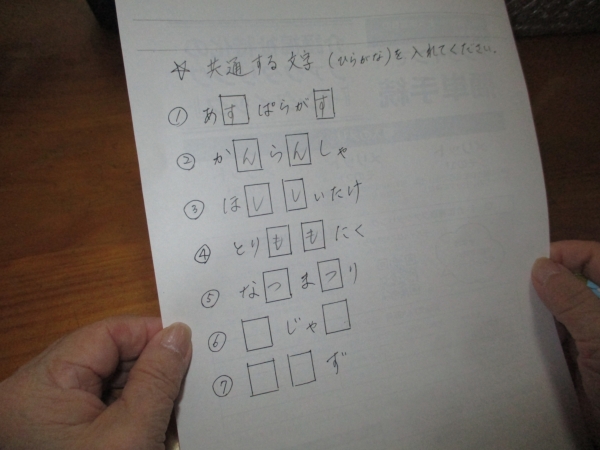 ☆ 共通する文字(ひらがな)を入れてください.
① あすぱらがす
② かんらんしゃ
③ ほししいたけ
④ とりももにく
⑤ なつまつり
⑥ □じゃ□
⑦ □□ず
申手続